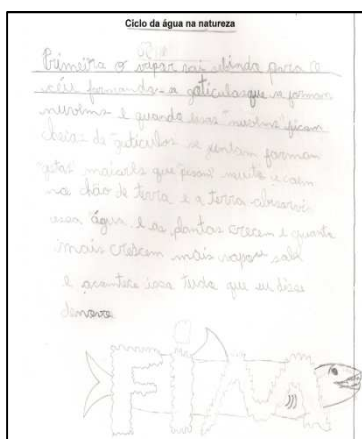 Ciclo da água na natureza
Primeira o vapor vai subindo para o
céu formando-a goticulas que se formam
nuvolms e quando essas nuvolms ficam
cheias de guticulas se juntam formam
gotas maiores que pesam muito e caem
no chão de terra e a terra absorve
essa água e as plantas crecem e quanto
mais crescem mais vapor sobe
e acontece isso tudo que eu disse
denovo
FIM